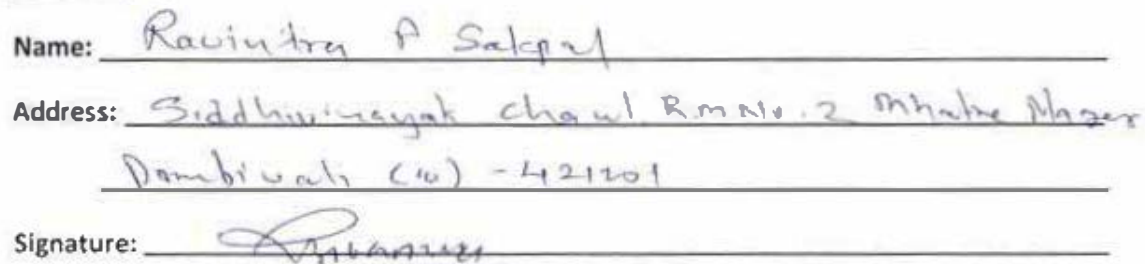 Name: Ravintra P Sakpal
Address: Siddhivinayak chawl R.m No. 2 Mhatre Nager
Dombivali (w) - 421201
Signature: